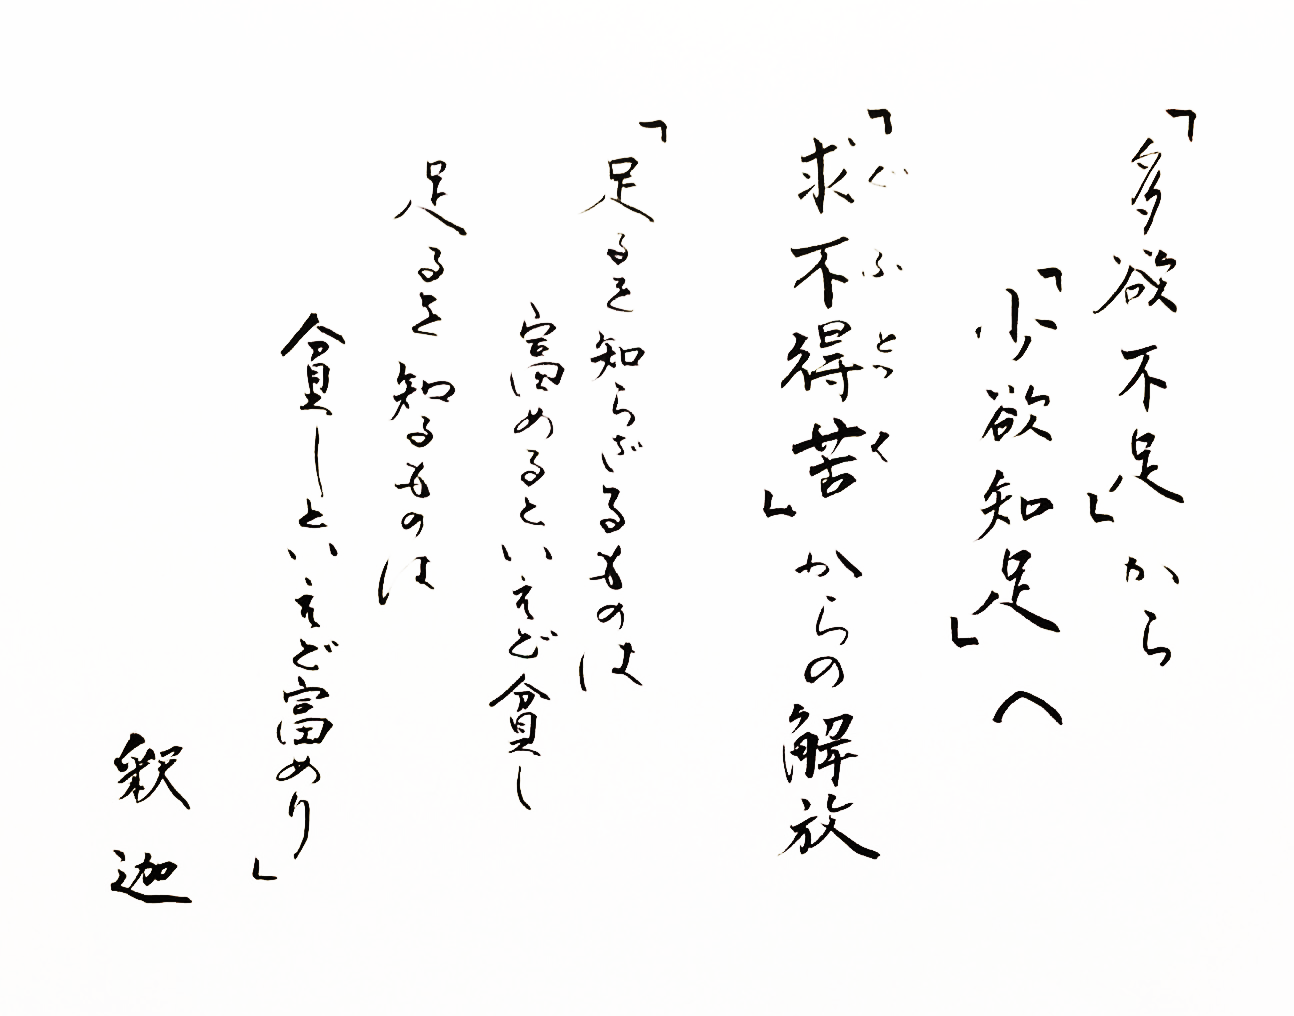 「多欲不足」から
「少欲知足」へ
「求不得苦」からの解放
ぐふとっく
「足るを知らざるものは
富めるといえど貧し
足るを知るものは
貧しといえど富めり」
釈迦